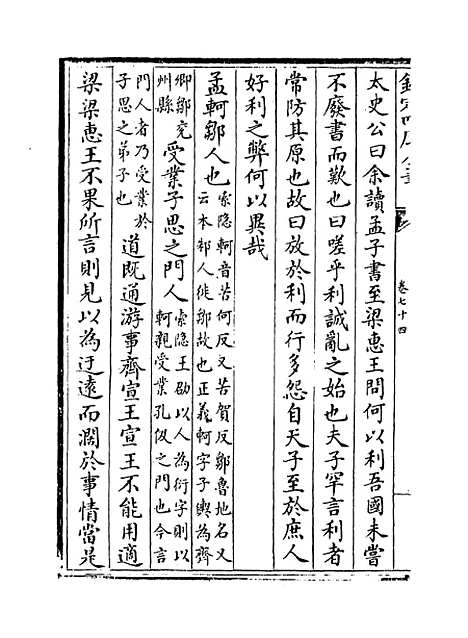 欽定四庫全書
卷七十四
太史公曰余讀孟子書至梁惠王問何以利吾國未嘗
不廢書而歎也曰嗟乎利誠亂之始也夫子罕言利者
常防其原也故曰放於利而行多怨自天子至於庶人
好利之弊何以異哉
孟軻鄒人也索隐軻音苦何反又苦賀反鄒魯地名又云本邾人徙鄒故也正義軻字子輿為齊
卿鄒兖州縣受業子思之門人索隐王劭以人為衍字則以軻親受業孔伋之門也今言
門人者乃受業於子思之弟子也道既通游事齊宣王宣王不能用適
梁梁惠王不果所言則見以為迂遠而濶於事情當是